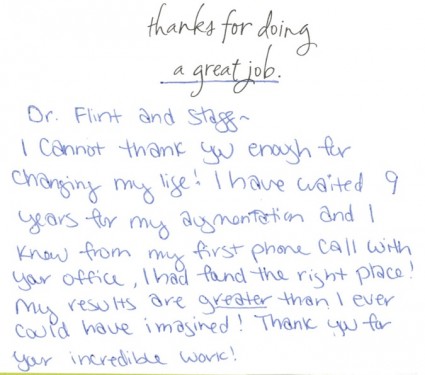 thanks for doing
a great job.
Dr. Flint and Staff~
I cannot thank you enough for
changing my life! I have waited 9
years for my augmentation and I
knew from my first phone call with
your office, I had found the right place!
My results are greater than I ever
could have imagined! Thank you for
your incredible work!